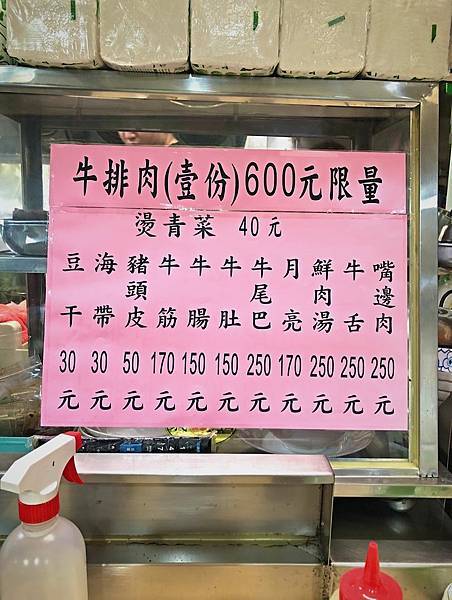 牛排肉(壹份)600元限量
燙青菜 40元
豆干 30元
海帶 30元
豬頭皮 50元
牛筋 170元
牛腸 150元
牛肚 150元
牛尾巴 250元
月亮 170元
鮮肉湯 250元
牛舌 250元
嘴邊肉 250元